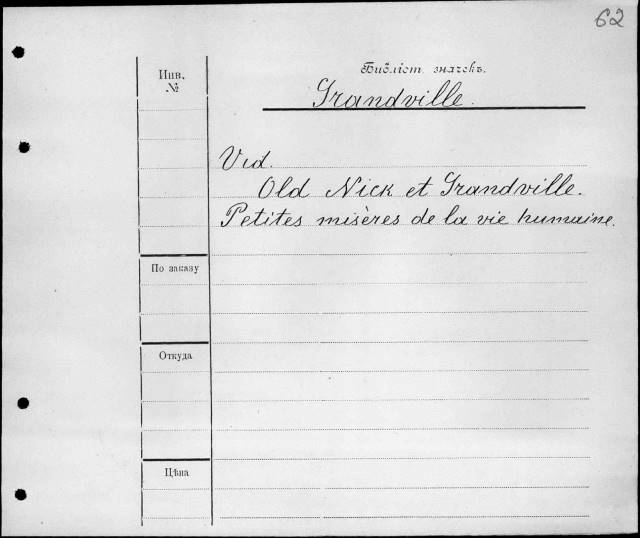 62
Инв.
№
Библіот. значекъ.
Grandville.
Vid.
Old Nick et Grandville.
Petites misères de la vie humaine.
По заказу
Откуда
Цѣна